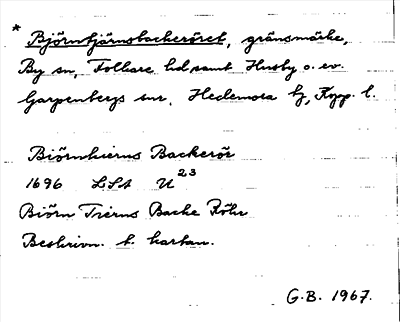 * Björntjärnsbackeröret, gränsmärke,
By sn, Folkare hd samt Husby o. ev.
Garpenbergs snr, Hedemora tg, Kopp. l.
Biörnkierns Backerör
1696 LSA U²³
Biörn Tierns Backe Röhr
Beskrivn. t. kartan.
G.B. 1967.